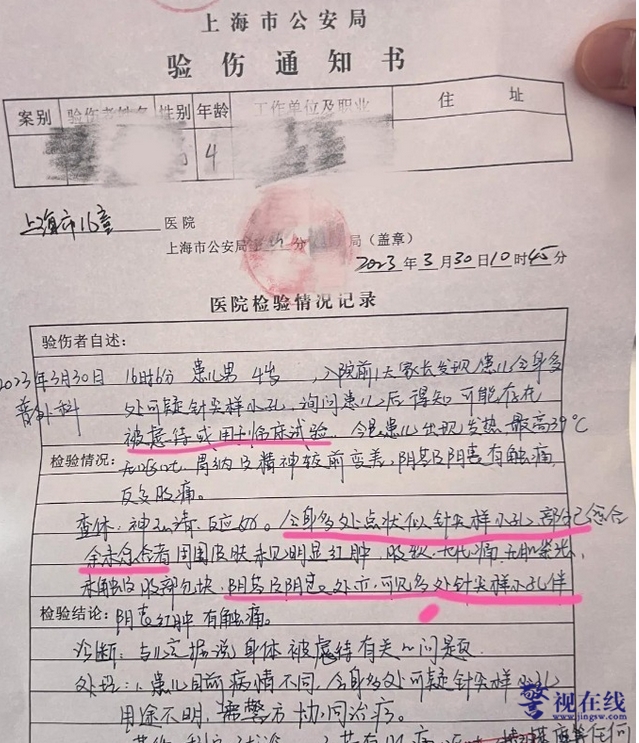 上海市公安局
验伤通知书
案别 验伤者姓名 性别 年龄 工作单位及职业 住 址
4
上海市16童 医院
上海市公安局 分 局（盖章）
2023年3月30日10时45分
医院检验情况记录
验伤者自述：
2023年3月30日 16时6分 患儿男 4岁，入院前1天家长发现患儿全身多
普外科 处可疑针尖样小孔，询问患儿后得知可能存在
被虐待或用于临床试验。今晨患儿出现发热，最高39℃
检验情况： 胃纳及精神较前变差，阴茎及阴囊有触痛，
反复腹痛。
查体：神志清，反应 。全身多处点状似针尖样小孔，部分已愈合
余未愈合者周围皮肤未见明显红肿，腹软，无压痛，
未触及腹部包块，阴茎及阴囊 处亦可见多处针尖样小孔伴
检验结论： 阴囊红肿有触痛。
诊断：与儿 据说身体被虐待有关的问题
处理：1、患儿目前病情不同，全身多处可疑针尖样小孔
用途不明，需警方协同治疗。
警视在线
www.jingsw.com